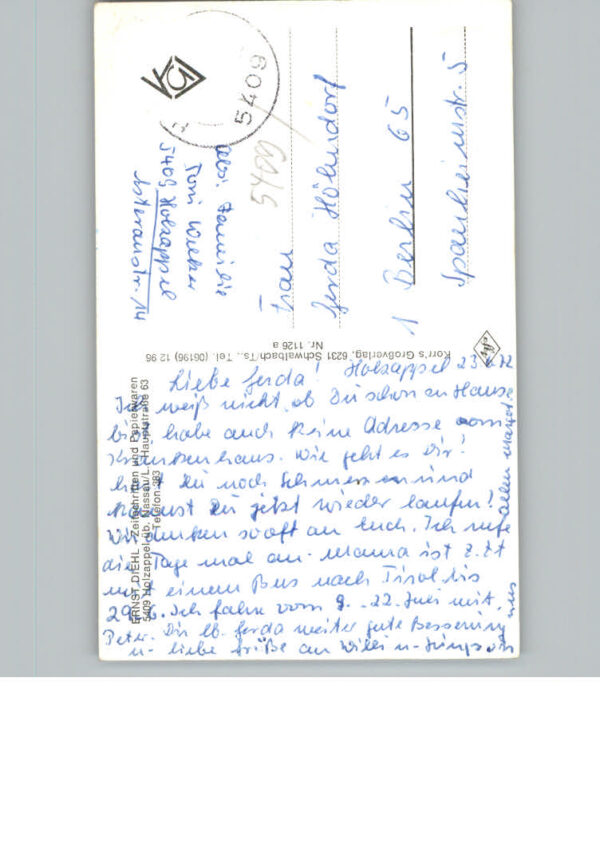 5409
5409
Abs. Familie
Toni
5409 Holzappel
14
Frau
Gerda Höhndorf
1 Berlin 65
Spanheimstr. 5
Korr's Großverlag, 6231 Schwalbach/Ts., Tel. (06196) 12 96
Nr. 1126 a
ERNST DIEHL - Zeitschriften und Papierwaren
5409 Holzappel üb. Nassau/L., Hauptstraße 63
Telefon 383
Holzappel 23.6.72
Liebe Gerda!
Ich weiß nicht, ob Du schon zu Hause
bist, habe auch keine Adresse vom
Krankenhaus. Wie geht es Dir?
hast Du noch Schmerzen und
kannst Du jetzt wieder laufen?
Wir denken so oft an Euch. Ich rufe
die Tage mal an. Mama ist z.Zt
mit einem Bus nach Tirol bis
29.6. Ich fahre vom 9. - 22. Juli mit
Peter. Dir lb. Gerda weiter gute Besserung
u. liebe Grüße an Willi u.